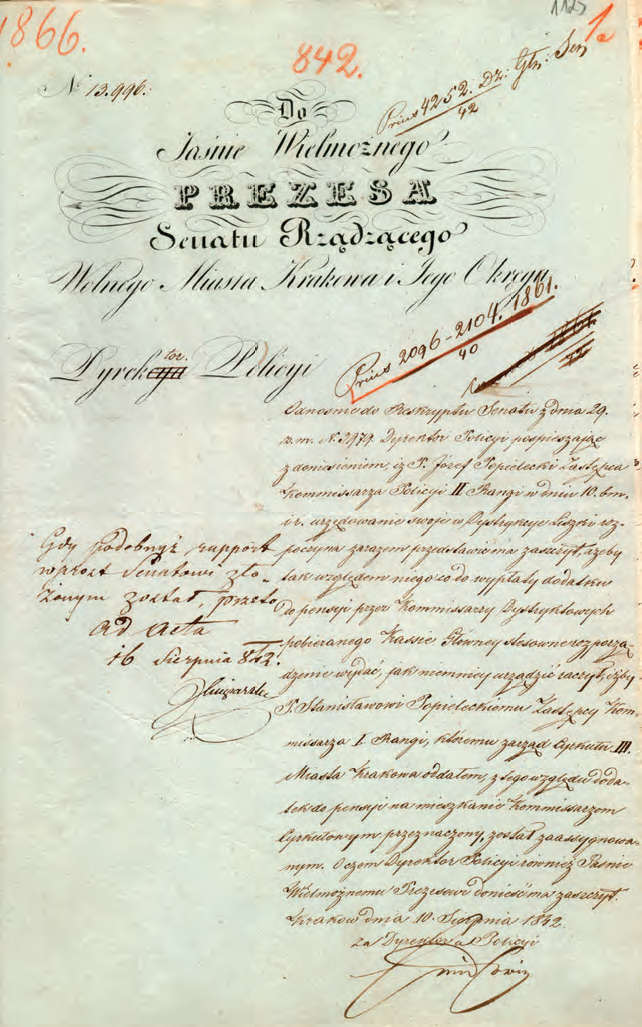 1866.
842.
1125
1.
N. 13.996.
Prius 4252. Dz: Głn: Sen
42
Do
Jaśnie Wielmożnego
PREZESA
Senatu Rządzącego
Wolnego Miasta Krakowa i Jego Okręgu
Prius 2096-2104. 1861.
40
1861.
42
Dyrekcya tor. Policyi
Odnośnie do Reskryptu Senatu z dnia 29.
z. m. N. 3979. Dyrektor Policyi pospieszając
z doniesieniem, iż P. Józef Popielecki Zastępca
Kommissarza Policyi II Rangi w dniu 10. bm.
i r. urzędowanie swoje w Dystrykcie Liszki roz-
poczyna zarazem przedstawić ma zaszczyt, iżby
tak względem niego co do wypłaty dodatku
do pensyi przez Kommissarzy Dystryktowych
pobieranego Kassie Głównej stosowne rozporzą-
dzenie wydać, jak niemniej urządzić raczył, iżby
P. Stanisławowi Popieleckiemu Zastępcy Kom-
missarza I. Rangi, któremu zarząd Cyrkułu III.
Miasta Krakowa oddałem, z tego względu doda-
tek do pensyi na mieszkanie Kommissarzom
Cyrkułowym przeznaczony, został zaassygnowa-
nym. O czem Dyrektor Policyi również Jaśnie
Wielmożnemu Prezesowi donieść ma zaszczyt.
Kraków dnia 10. Sierpnia 1842.
za Dyrektora Policyi
Gdy podobnyż rapport
wprost Senatowi zło-
żonym został, przeto
ad acta
16 Sierpnia 842.